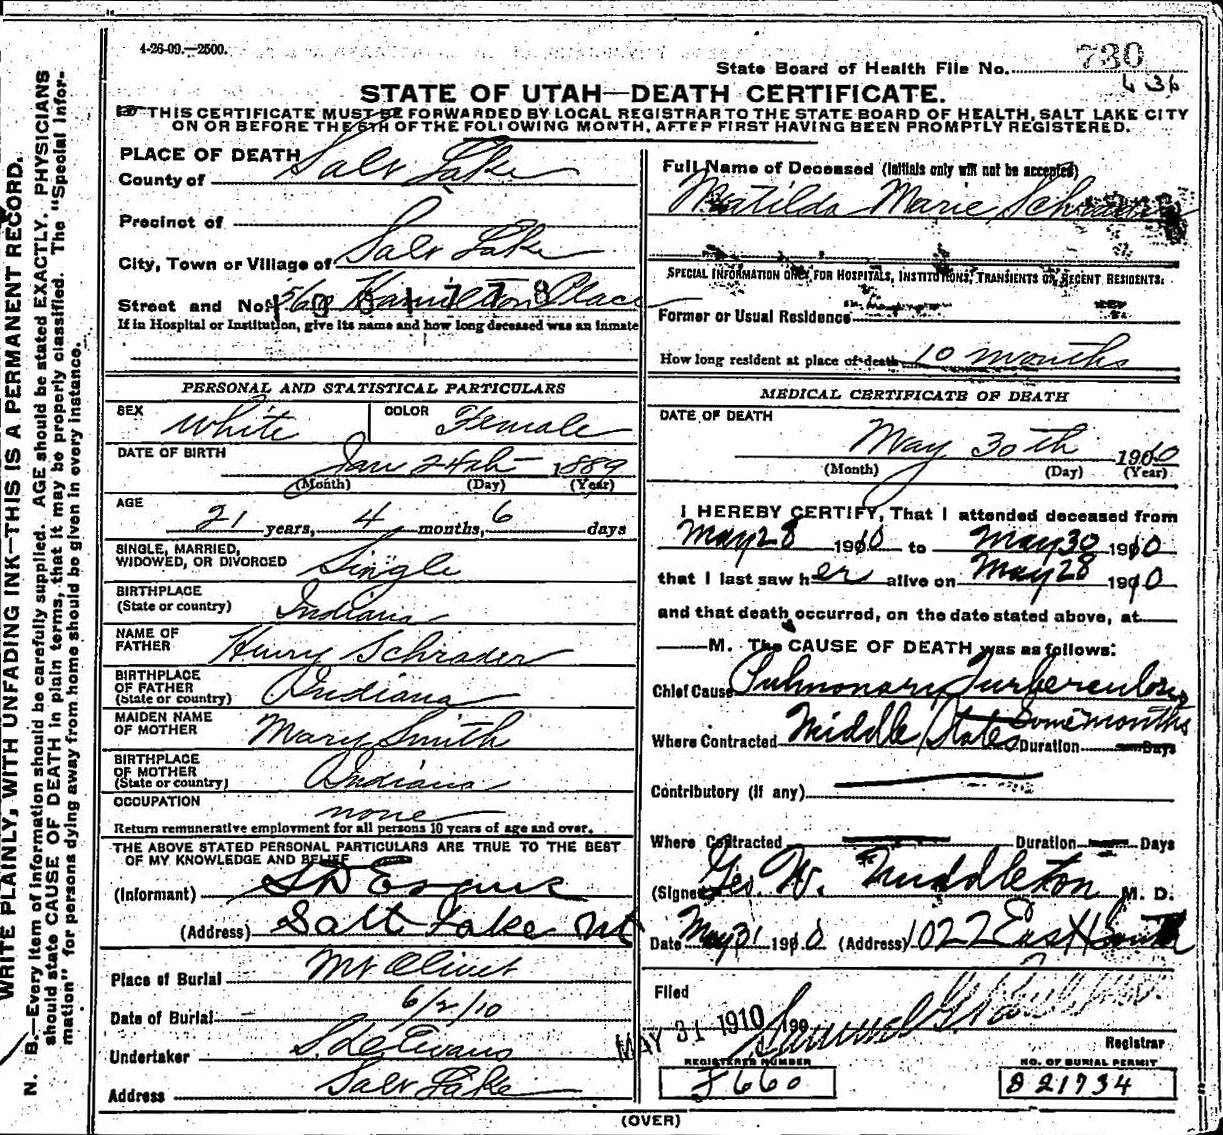 4-26-09.—2500.
State Board of Health File No. 730
636
STATE OF UTAH—DEATH CERTIFICATE.
THIS CERTIFICATE MUST BE FORWARDED BY LOCAL REGISTRAR TO THE STATE BOARD OF HEALTH, SALT LAKE CITY
ON OR BEFORE THE 5TH OF THE FOLLOWING MONTH, AFTER FIRST HAVING BEEN PROMPTLY REGISTERED.
WRITE PLAINLY, WITH UNFADING INK—THIS IS A PERMANENT RECORD.
N. B.—Every item of information should be carefully supplied. AGE should be stated EXACTLY. PHYSICIANS
should state CAUSE OF DEATH in plain terms, that it may be properly classified. The "Special Infor-
mation" for persons dying away from home should be given in every instance.
PLACE OF DEATH
County of Salt Lake
Precinct of
City, Town or Village of Salt Lake
Street and No. Hamilton Place
If in Hospital or Institution, give its name and how long deceased was an inmate
PERSONAL AND STATISTICAL PARTICULARS
SEX White COLOR Female
DATE OF BIRTH Jan 24th 1889
(Month) (Day) (Year)
AGE 21 years, 4 months, 6 days
SINGLE, MARRIED,
WIDOWED, OR DIVORCED Single
BIRTHPLACE
(State or country) Indiana
NAME OF
FATHER Henry Schrader
BIRTHPLACE
OF FATHER
(State or country) Indiana
MAIDEN NAME
OF MOTHER Mary Smith
BIRTHPLACE
OF MOTHER
(State or country) Indiana
OCCUPATION none
Return remunerative employment for all persons 10 years of age and over.
THE ABOVE STATED PERSONAL PARTICULARS ARE TRUE TO THE BEST
OF MY KNOWLEDGE AND BELIEF
(Informant) S D Evans
(Address) Salt Lake Ut
Place of Burial Mt Olivet
Date of Burial 6/2/10
Undertaker S. D. Evans
Address Salt Lake
Full Name of Deceased (Initials only will not be accepted)
Matilda Marie Schrader
SPECIAL INFORMATION ONLY FOR HOSPITALS, INSTITUTIONS, TRANSIENTS OR RECENT RESIDENTS.
Former or Usual Residence
How long resident at place of death 10 months
MEDICAL CERTIFICATE OF DEATH
DATE OF DEATH
May 30th 1910
(Month) (Day) (Year)
I HEREBY CERTIFY, That I attended deceased from
May 28 1910 to May 30 1910
that I last saw her alive on May 28 1910
and that death occurred, on the date stated above, at
M. The CAUSE OF DEATH was as follows:
Chief Cause Pulmonary Turberculosis
Some months
Where Contracted Middle States Duration Days
Contributory (if any)
Where Contracted Duration Days
(Signed) Geo. W. Middleton M. D.
Date May 31 1910 (Address) 1022 East South
Filed
MAY 31 1910 190
Registrar
REGISTERED NUMBER NO. OF BURIAL PERMIT
J660 D 21734
(OVER)